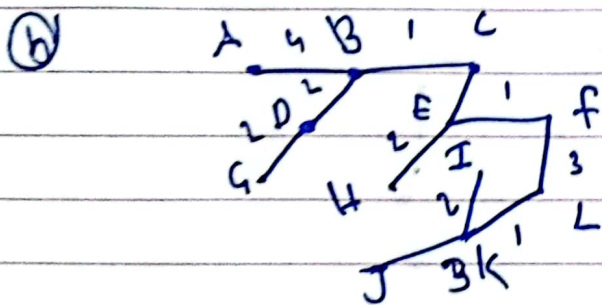 b
A 4 B 1 C
2 D 2 E 1 f
G H 2 I 3
2 1 L
J 3 K